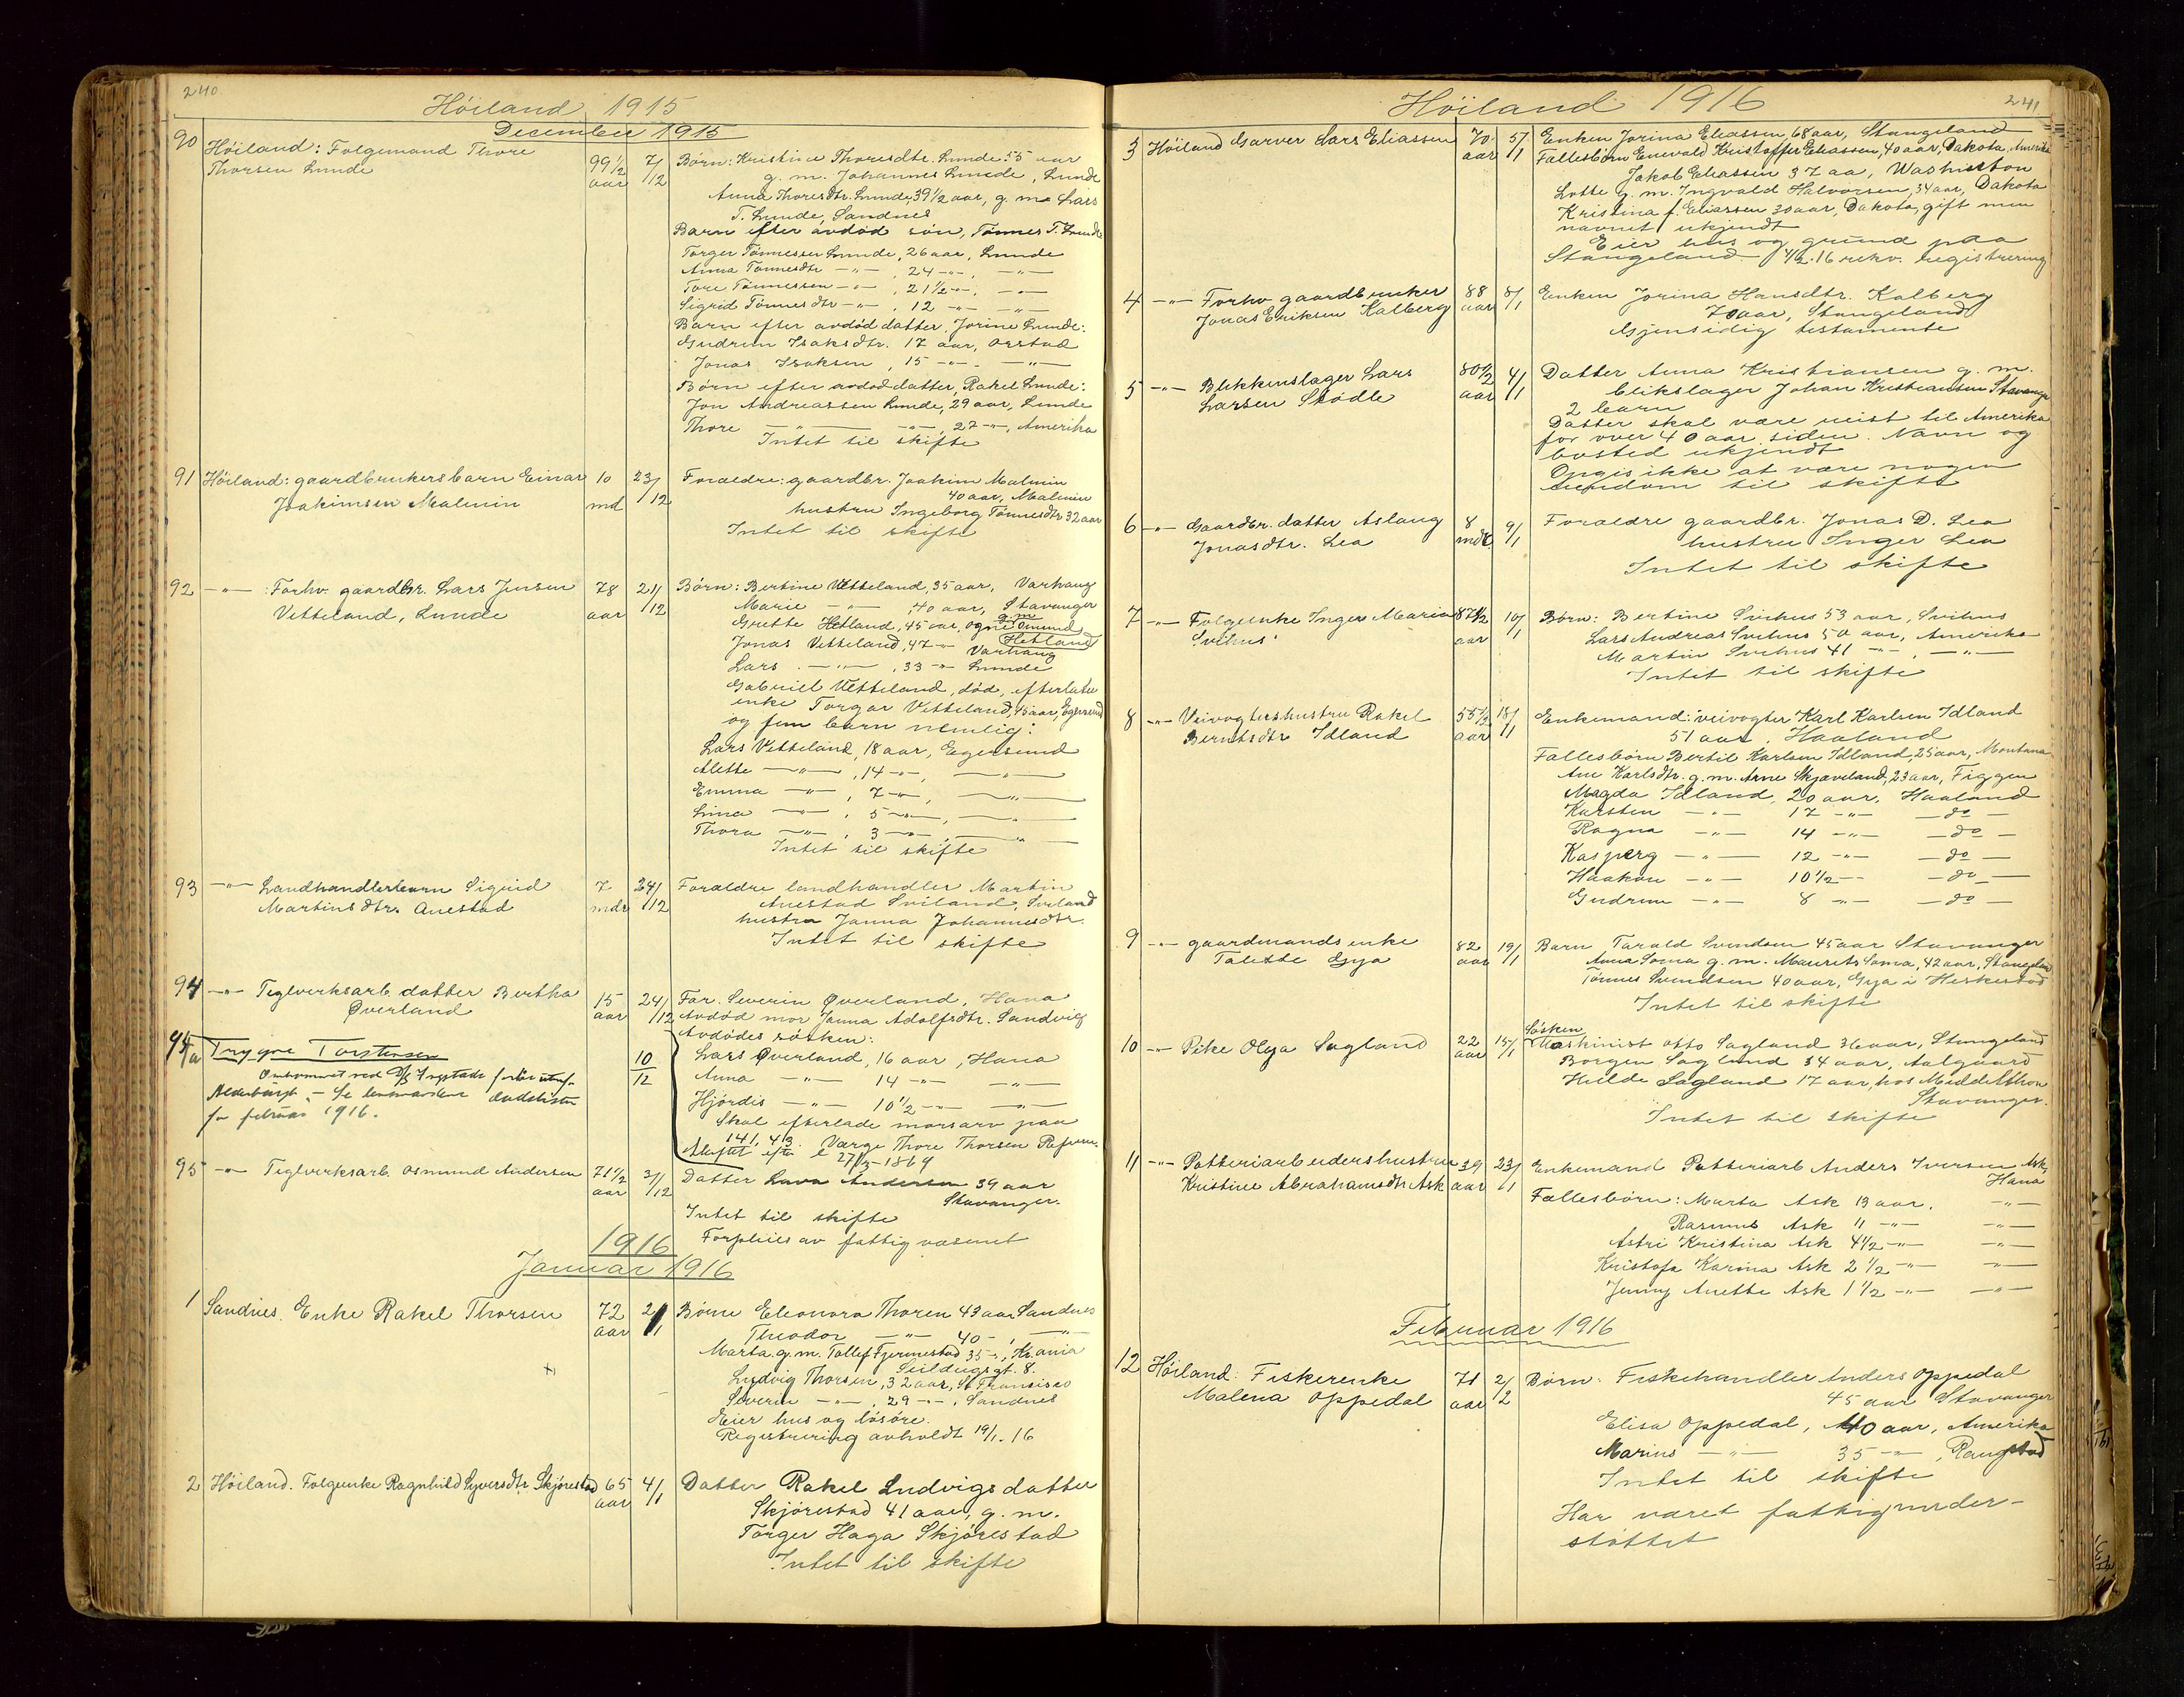 240
Höiland 1915
December 1915
90 Höiland: Folgemand Thore 99 1/2 aar 7/12 Börn: Kristine Thoresdtr. Lunde 55 aar
Thorsen Lunde g. m. Johannes Lunde, Lunde
Anna Thoresdtr. Lunde 39 1/2 aar, g. m. Lars
T. Lunde, Sandnes
Barn efter avdöd sön, Tönnes T. Lunde
Torger Tönnessen Lunde, 26 aar, Lunde
Anna Tönnesdtr —"— , 24 —"—, —"—
Tore Tönnessen —"— , 21 1/2 —"—, —"—
Sigrid Tönnesdtr —"— , 12 —"— —"—
Barn efter avdöd datter, Jorine Lunde:
Gudrun Isaksdtr. 17 aar, Orstad
Jonas Isaksen, 15 —"— —"—
Börn efter avdöd datter, Rakel Lunde:
Jon Andreassen Lunde, 29 aar, Lunde
Thore —"— —"—, 27 —"—, Amerika
Intet til skifte
91 Höiland: gaardbrukersbarn Einar 10 md 23/12 Foraeldre: gaardbr. Joakim Malmin
Joakimsen Malmin 40 aar, Malmin
hustru Ingeborg Tönnesdtr 32 aar
Intet til skifte
92 —"— Forhv. gaardbr. Lars Jensen 78 aar 21/12 Börn: Bertine Vetteland, 35 aar, Varhaug
Vetteland, Lunde Marie —"— , 40 aar, Stavanger
Grette Hetland, 45 aar, Ogne g.m. Omund Hetland
Jonas Vetteland, 47 —"— Varhaug
Lars —"— , 33 —"— Lunde
Gabriel Vetteland, död, efterlater
enke Torgar Vetteland, 45 aar, Egersund
og fem barn nemlig:
Lars Vetteland, 18 aar, Egersund
Alette —"— , 14 —"—, —"—
Emma —"— , 7 —"—, —"—
Lina —"— , 5 —"—, —"—
Thora —"— , 3 —"— , —"—
Intet til skifte
93 —"— Landhandlerbarn Sigrid 7 mdr 24/12 Foraeldre landhandler Martin
Martinsdtr. Auestad Auestad Sviland, Sviland
hustru Janna Johannesdtr.
Intet til skifte
94 —"— Teglverksarb. datter Bertha 15 aar 24/12 Far. Severin Överland, Hana
Överland Avdöd mor Janna Adolfsdtr. Sandvig
Avdödes sösken:
Lars Överland, 16 aar, Hana
Anna —"— 14 —"— —"—
Hjördis —"— 10 1/2 —"— —"—
Skal efterlade morsarv paa
141.43. Værge Thore Thorsen
Skiftet efter l 27/3-1869
94a Trygve Torstensen 10/12
Omkommet ved D/S
- Se lensmandens dödsliste
for februar 1916.
95 —"— Teglverksarb. Osmund Andersen 71 1/2 aar 3/12 Datter Lava Andersen 39 aar
Stavanger.
Intet til skifte
Forpleies av fattigvæsenet
1916
Januar 1916
1 Sandnes. Enke Rakel Thorsen 72 aar 2/1 Börn Eleonora Thoren 43 aar Sandnes
Theodor —"— 40 —, —"—
Marta g. m. Tollef Fjermestad 35 —"—, Kr.ania
Seildugsgt. 8.
Ludvig Thorsen, 32 aar, St Fransisco
Severin —"— , 29 —"— , Sandnes
Eier hus og lösöre.
Registrering avholdt 19/1.16
2 Höiland. Folgeenke Ragnhild Syversdtr Skjörestad 65 aar 4/1 Datter Rakel Ludvigsdatter
Skjörestad 41 aar, g. m.
Torger Haga Skjörestad
Intet til skifte
241
Höiland 1916
3 Höiland Garver Lars Eliassen 70 aar 5/1 Enken Jorina Eliassen, 68 aar, Stangeland
Fællesbörn Enevald Kristoffer Eliassen, 40 aar, Dakota, Amerika
Jakob Eliassen 37 aa, Washinton
Lotte g. m. Ingvald Halvorsen, 34 aar, Dakota
Kristina f. Eliassen 30 aar, Dakota, gift men
navnet ukjendt
Eier hus og grund paa
Stangeland. 4/2.16 rekv. registrering
4 —"— Forhv gaardbruker 88 aar 8/1 Enken Jorina Hansdtr. Kalberg
Jonas Eriksen Kalberg 70 aar, Stangeland
Gjensidig testamente
5 —"— Blikkenslager Lars 80 1/2 aar 4/1 Datter Anna Kristiansen g. m.
Larsen Skodle blikslager Johan Kristiansen Stavanger
2 barn
Datter skal være reist til Amerika
for over 40 aar siden. Navn og
bosted ukjendt
Opgis ikke at være nogen
eiendom til skifte
6 —"— Gaardbr. datter Aslaug 8 mdr. 9/1 Foraeldre gaardbr. Jonas D. Lea
Jonasdtr. Lea hustru Inger Lea
Intet til skifte
7 —"— Folgeenke Inger Maria 87 1/2 aar 10/1 Börn: Bertine Svihus 53 aar, Svihus
Svihus Lars Andreas Svihus 50 aar, Amerika
Martin Svihus 41 —"— , —"—
Intet til skifte
8 —"— Veivogterhustru Rakel 55 1/2 aar 18/1 Enkemand: veivogter Karl Karlsen Idland
Berntsdtr Idland 51 aar, Haaland
Fællesbörn Bertil Karlsen Idland, 25 aar, Montana
Ane Karlsdtr. g. m. Arne Skjæveland, 23 aar, Figgen
Magda Idland, 20 aar, Haaland
Karsten —"— 17 —"— — do —
Ragna —"— 14 —"— — do —
Kasperg —"— 12 —"— — do —
Haakon —"— 10 1/2 —"— — do —
Gudrun —"— 8 —"— — do —
9 —"— gaardmandsenke 82 aar 19/1 Barn Tarald Svendsen 45 aar Stavanger
Talette Gya Anna Soma g. m. Maurits Soma, 42 aar, Stangeland
Tönnes Svendsen 40 aar, Gya i Heskestad
Intet til skifte
10 —"— Pike Olga Sagland 22 aar 15/1 Sösken
Maskinist Otto Sagland 36 aar, Stangeland
Borgen Sagland 34 aar, Aalgaard
Hilda Sagland 17 aar, hos Middelthon
Stavanger.
Intet til skifte
11 —"— Potteriarbeidershustru 39 aar 23/1 Enkemand Potteriarb Anders Iversen Ask,
Kristine Abrahamsdtr Ask Hana
Fællesbörn: Marta Ask 13 aar. —"—
Rasmus Ask 11 —"— —"—
Astri Kristina Ask 4 1/2 —"— —"—
Kristofa Karina Ask 2 1/2 —"— —"—
Jenny Anette Ask 1 1/2 —"— —"—
Februar 1916
12 Höiland: Fiskerenke 71 aar 2/2 Börn: Fiskehandler Anders Oppedal
Malena Oppedal 45 aar Stavanger
Elisa Oppedal, 40 aar, Amerika
Marius —"— 35 —"—,
Intet til skifte
Har været fattigunder-
stöttet